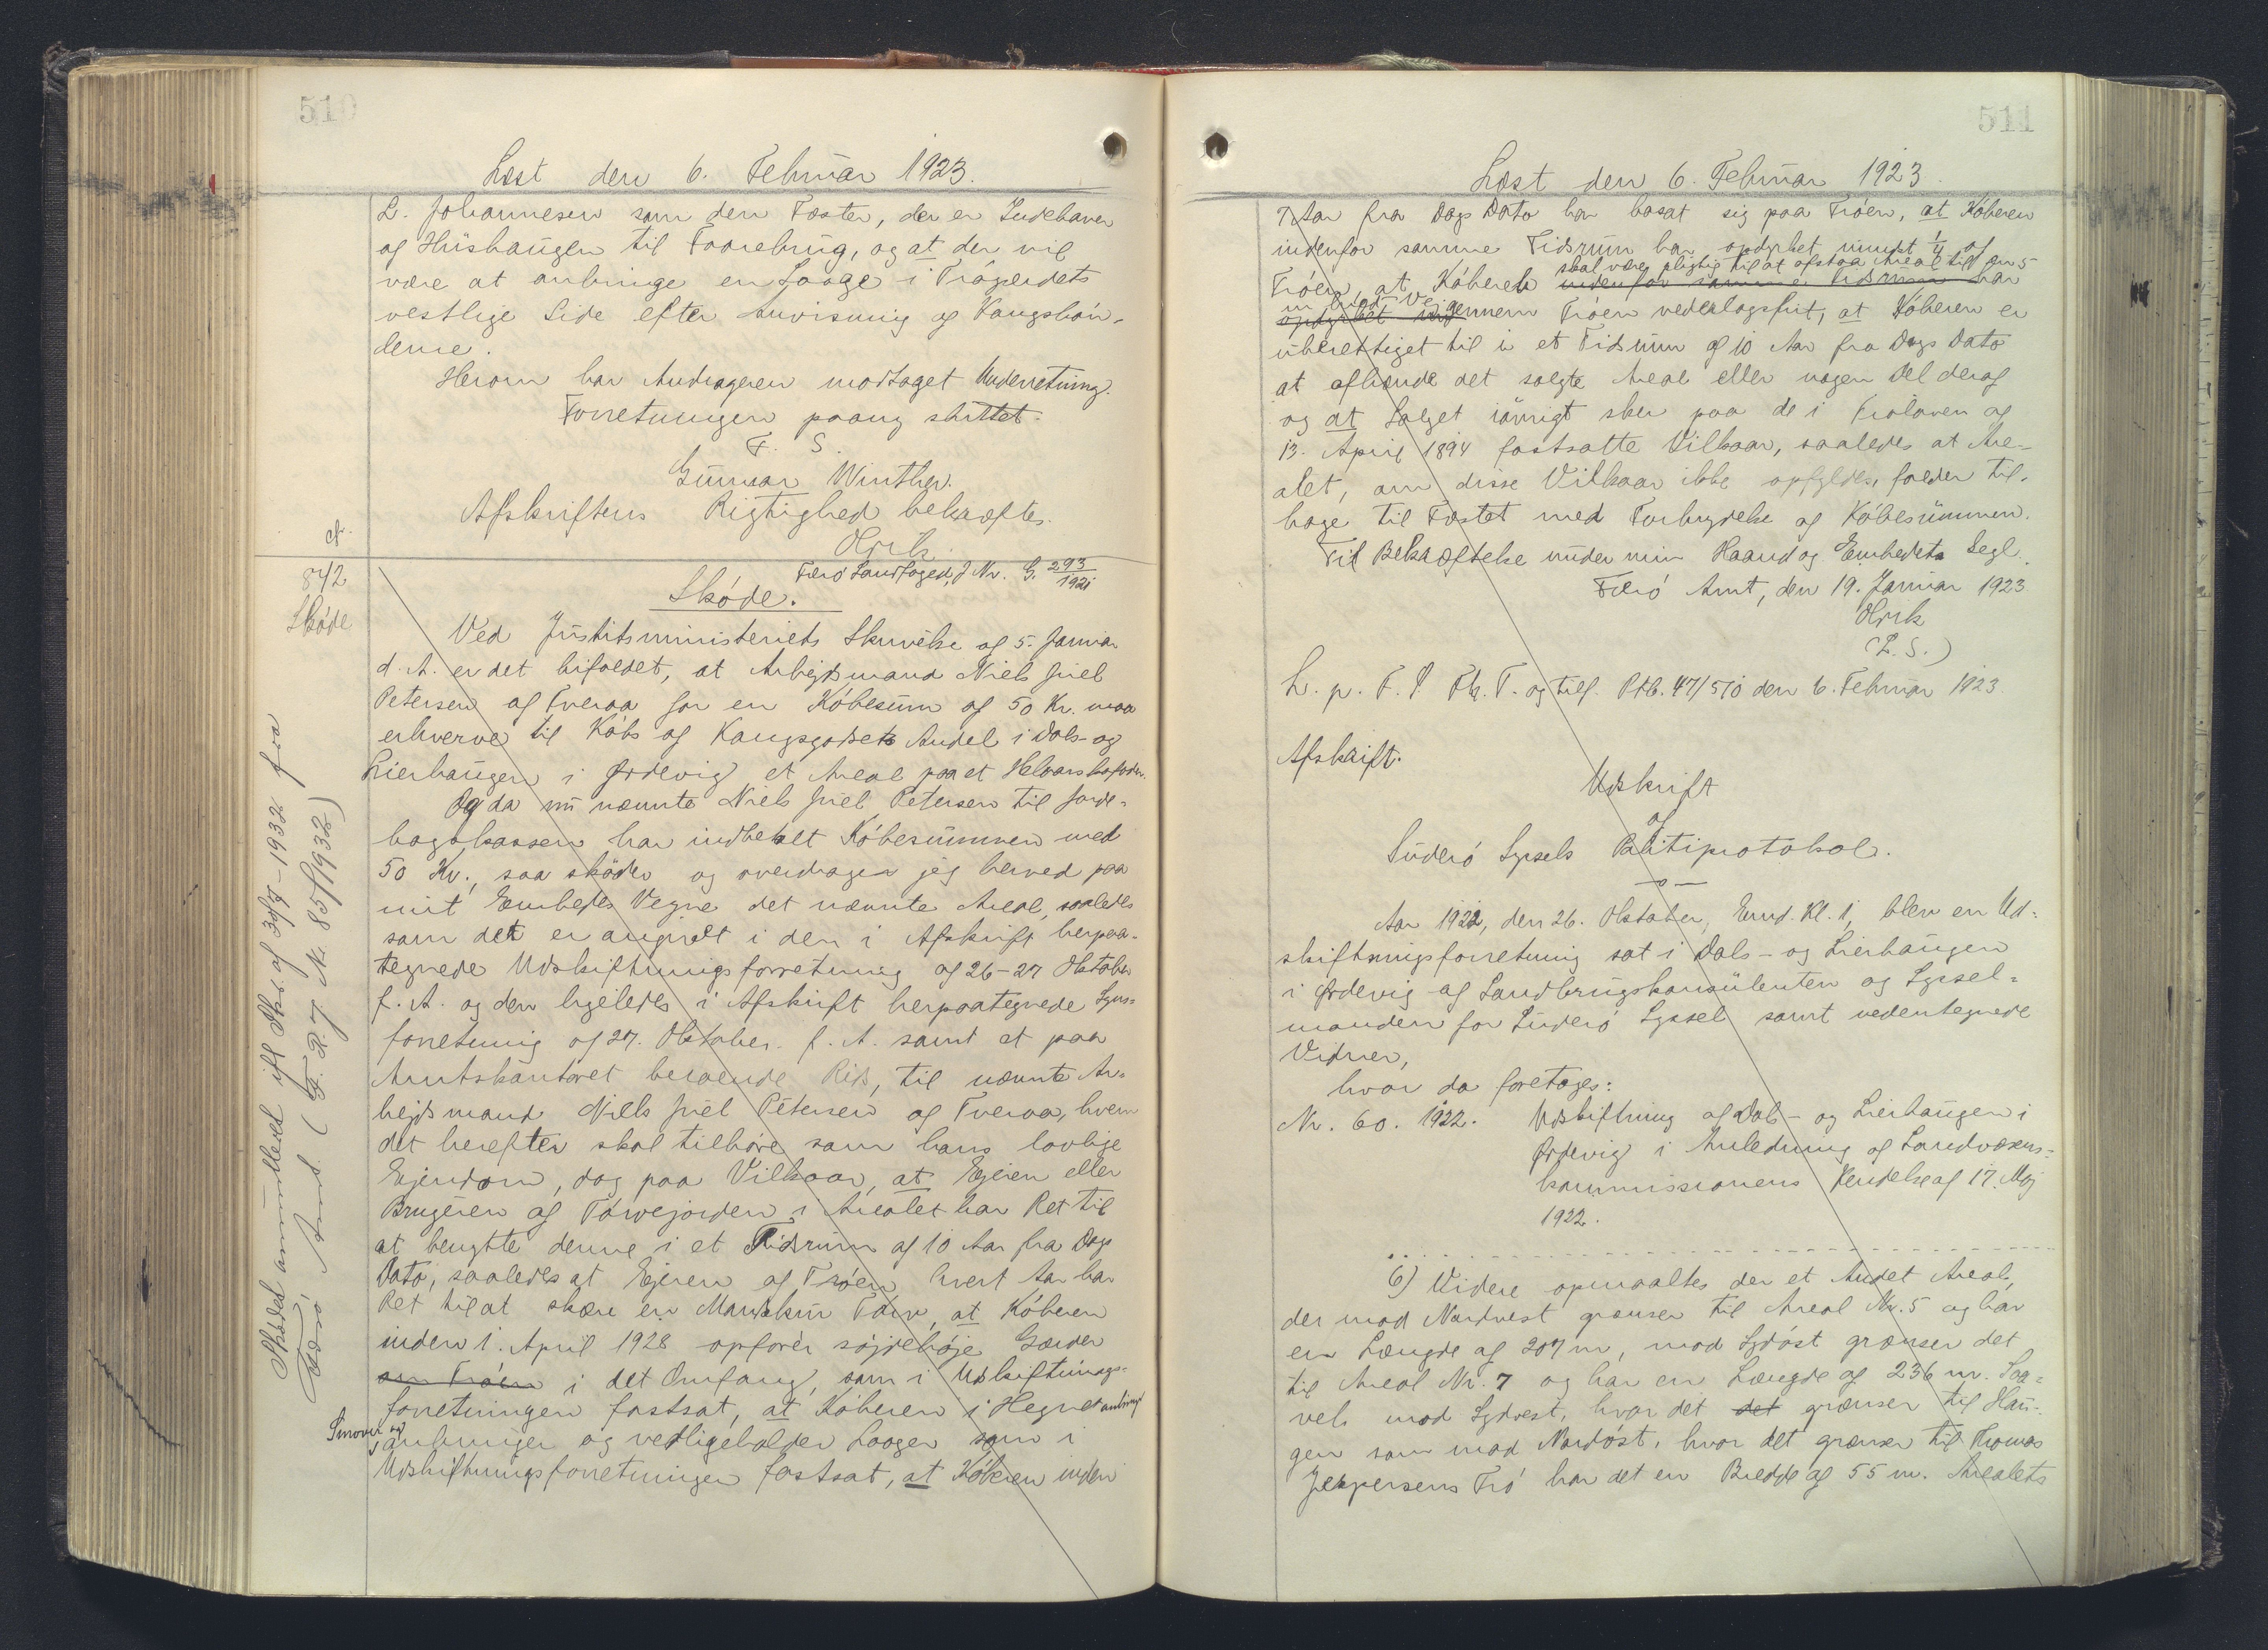 510
Læst den 6. Februar 1923.
L. Johannesen som den Fæster, der er Indehaver
af Húshaúgen til Faarebrúg, og at der vil
være at anbringe en Laage i Trøgærdets
vestlige Side efter Anvisning af Kongsbøn-
derne.
Herom har Andrageren modtaget Underretning.
Forretningen paany sluttet.
F. S.
Gúnnar Winther.
Afskriftens Rigtighed bekræftes.
cf.
Færø Landfoged, J Nr. G. 293/1921
842
Skøde
Skøde.
Ved Jústitsministeriets Skrivelse af 5. Januar
d. A. er det bifaldet, at Arbejdsmand Niels Júel
Petersen af Tveraa for en Købesúm af 50 Kr. maa
erhverve til Købs af Kongsgodsets Andel i Dals- og
Lierhaúgen i Ørdevig et Areal paa et
Og da nú nævnte Niels Júel Petersen til Jorde-
bogskassen har indbetalt Købesúmmen med
50 Kr., saa skøder og overdrager jeg herved paa
mit Embedes Vegne det nævnte Areal, saaledes
som det er angivet i den i Afskrift herpaa-
tegnede Udskiftningsforretning af 26-27 Oktober
f. A. og den ligeledes i Afskrift herpaategnede Syns-
forretning af 27. Oktober f. A. samt et paa
Amtskontoret beroende Rids, til nævnte Ar-
bejdsmand Niels Júel Petersen af Tveraa, hvem
det herefter skal tilhøre som hans lovlige
Ejendom, dog paa Vilkaar, at Ejeren eller
Brugeren af Tørvejorden i Arealet har Ret til
at benytte denne i et Tidsrúm af 10 Aar fra Dags
Dato, saaledes at Ejeren af Trøen hvert Aar har
Ret til at skære en Tørv, at Køberen
inden 1. April 1928 opfører søjdehøje Gærder
om Trøen i det Omfang, som i Udskiftnings-
forretningen fastsat, at Køberen i Hegnet
anbringer og vedligeholder Laager som i
Udskiftningsforretningen fastsat, at Køberen inden
Skødet annulleret ifl Skr. af 30/7-1932 fra
Færø Amt. (F. A. J. Nr 85/1932)
511
Læst den 6. Februar 1923.
7 Aar fra Dags Dato har bosat sig paa Trøen, at Køberen
indenfor samme Tidsrúm har opdyrket mindst 1/4 af
skal være pligtig til at afstaa Areal til en 5
Trøen, at Køberen indenfor samme Tidsrum har
m bred Vej
opdyrket gennem Trøen vederlagsfrit, at Køberen er
úberettiget til i et Tidsrúm af 10 Aar fra Dags Dato
at afhænde det solgte Areal eller nogen Del deraf
og at Salget iøvrigt sker paa de i Trøloven af
13. April 1894 fastsatte Vilkaar, saaledes at Are-
alet, om disse Vilkaar ikke opfyldes, falder til-
bage til Fæstet med Forbrydelse af Købesúmmen.
Til Bekræftelse únder min Haand og Embedets Segl.
Færø Amt, den 19. Januar 1923
(L. S.)
L. p. F. I Fk. T. og tilf. Ptb. 47/510 den 6. Februar 1923.
Afskrift.
Udskrift
af
Súderø Syssels Politiprotokol.
—o—
Aar 1922, den 26. Oktober, Emd. Kl. 1, blev en Ud-
skiftningsforretning sat i Dals- og Lierhaúgen
i Ørdevig af Landbrúgskonsúlenten og Syssel-
manden for Súderø Syssel samt vedentegnede
Vidner,
hvor da foretages:
Nr. 60. 1922. Udskiftning af Dals- og Lierhaúgen i
Ørdevig i Anledning af Landvæsens-
kommissionens Kendelse af 17. Maj
1922.
6) Videre opmaaltes der et Andet Areal,
der mod Nordvest grænser til Areal Nr. 5 og har
en Længde af 207 m, mod Sydøst grænser det
til Areal Nr. 7 og har en Længde af 236 m. Saa-
vel mod Sydvest, hvor det det grænser til Haú-
gen som mod Nordøst, hvor det grænser til Thomas
Jespersens Trø har det en Bredde af 55 m. Arealets